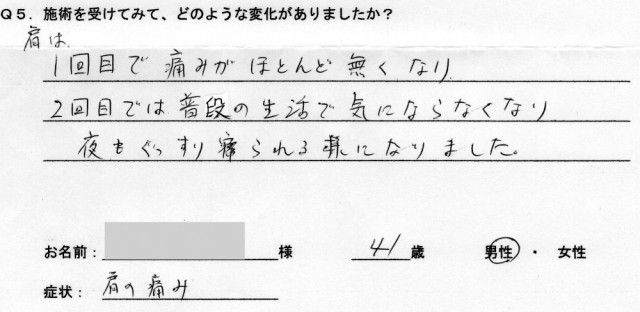 Q5．施術を受けてみて、どのような変化がありましたか？
肩は
1回目で痛みがほとんど無くなり
2回目では普段の生活で気にならなくなり
夜もぐっすり寝られる様になりました。
お名前： 様 41歳 男性・女性
症状： 肩の痛み